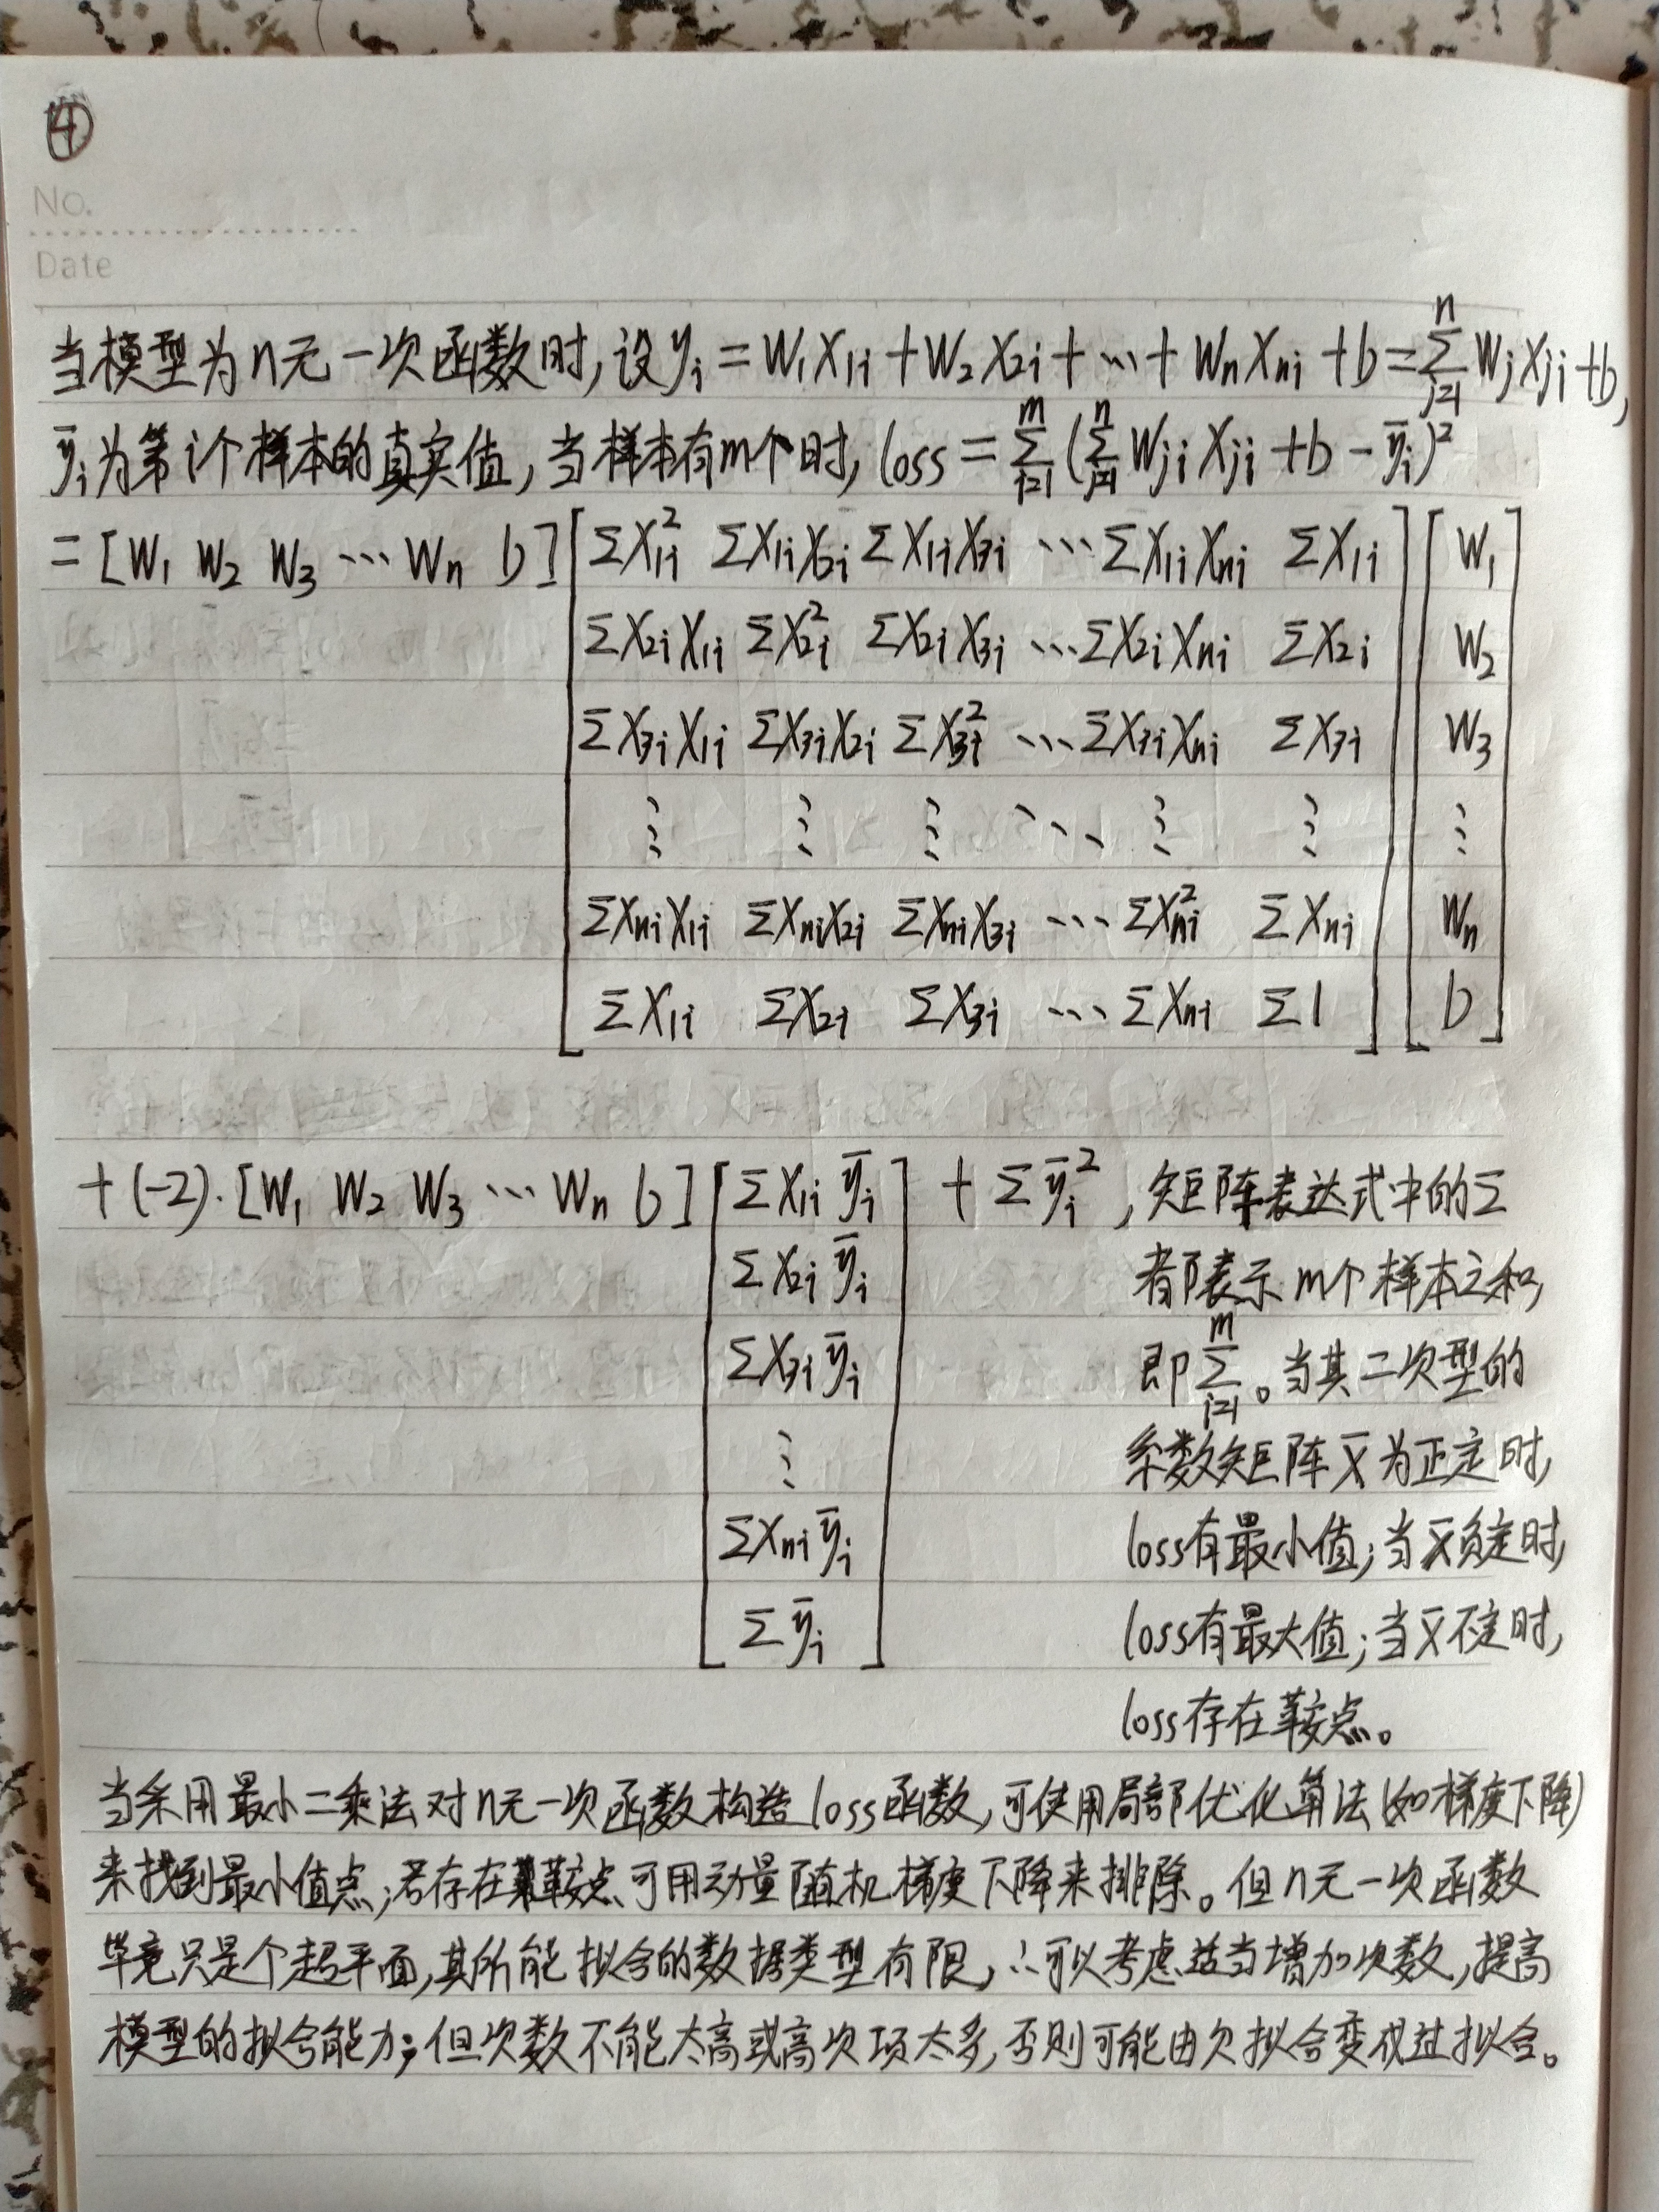 ④
No.
Date
当模型为n元一次函数时,设yᵢ = W₁X₁ᵢ + W₂X₂ᵢ + … + WₙXₙᵢ + b = Σⱼ₌₁ⁿ WⱼXⱼᵢ + b,
ȳᵢ为第i个样本的真实值,当样本有m个时, loss = Σᵢ₌₁ᵐ (Σⱼ₌₁ⁿ WⱼᵢXⱼᵢ + b - ȳᵢ)²
= [W₁ W₂ W₃ … Wₙ b] [ΣX₁ᵢ² ΣX₁ᵢX₂ᵢ ΣX₁ᵢX₃ᵢ … ΣX₁ᵢXₙᵢ ΣX₁ᵢ] [W₁]
ΣX₂ᵢX₁ᵢ ΣX₂ᵢ² ΣX₂ᵢX₃ᵢ … ΣX₂ᵢXₙᵢ ΣX₂ᵢ W₂
ΣX₃ᵢX₁ᵢ ΣX₃ᵢX₂ᵢ ΣX₃ᵢ² … ΣX₃ᵢXₙᵢ ΣX₃ᵢ W₃
⋮ ⋮ ⋮ ⋱ ⋮ ⋮ ⋮
ΣXₙᵢX₁ᵢ ΣXₙᵢX₂ᵢ ΣXₙᵢX₃ᵢ … ΣXₙᵢ² ΣXₙᵢ Wₙ
ΣX₁ᵢ ΣX₂ᵢ ΣX₃ᵢ … ΣXₙᵢ Σ1 b
+ (-2)·[W₁ W₂ W₃ … Wₙ b] [ΣX₁ᵢȳᵢ] + Σȳᵢ² ,矩阵表达式中的Σ
ΣX₂ᵢȳᵢ 都表示m个样本之和,
ΣX₃ᵢȳᵢ 即Σᵢ₌₁ᵐ。当其二次型的
⋮ 系数矩阵X̄为正定时,
ΣXₙᵢȳᵢ loss有最小值;当X̄负定时,
Σȳᵢ loss有最大值;当X̄不定时,
loss存在鞍点。
当采用最小二乘法对n元一次函数构造loss函数,可使用局部优化算法(如梯度下降)
来找到最小值点;若存在鞍点可用动量随机梯度下降来排除。但n元一次函数
毕竟只是个超平面,其所能拟合的数据类型有限,∴可以考虑适当增加次数,提高
模型的拟合能力;但次数不能太高或高次项太多,否则可能由欠拟合变成过拟合。